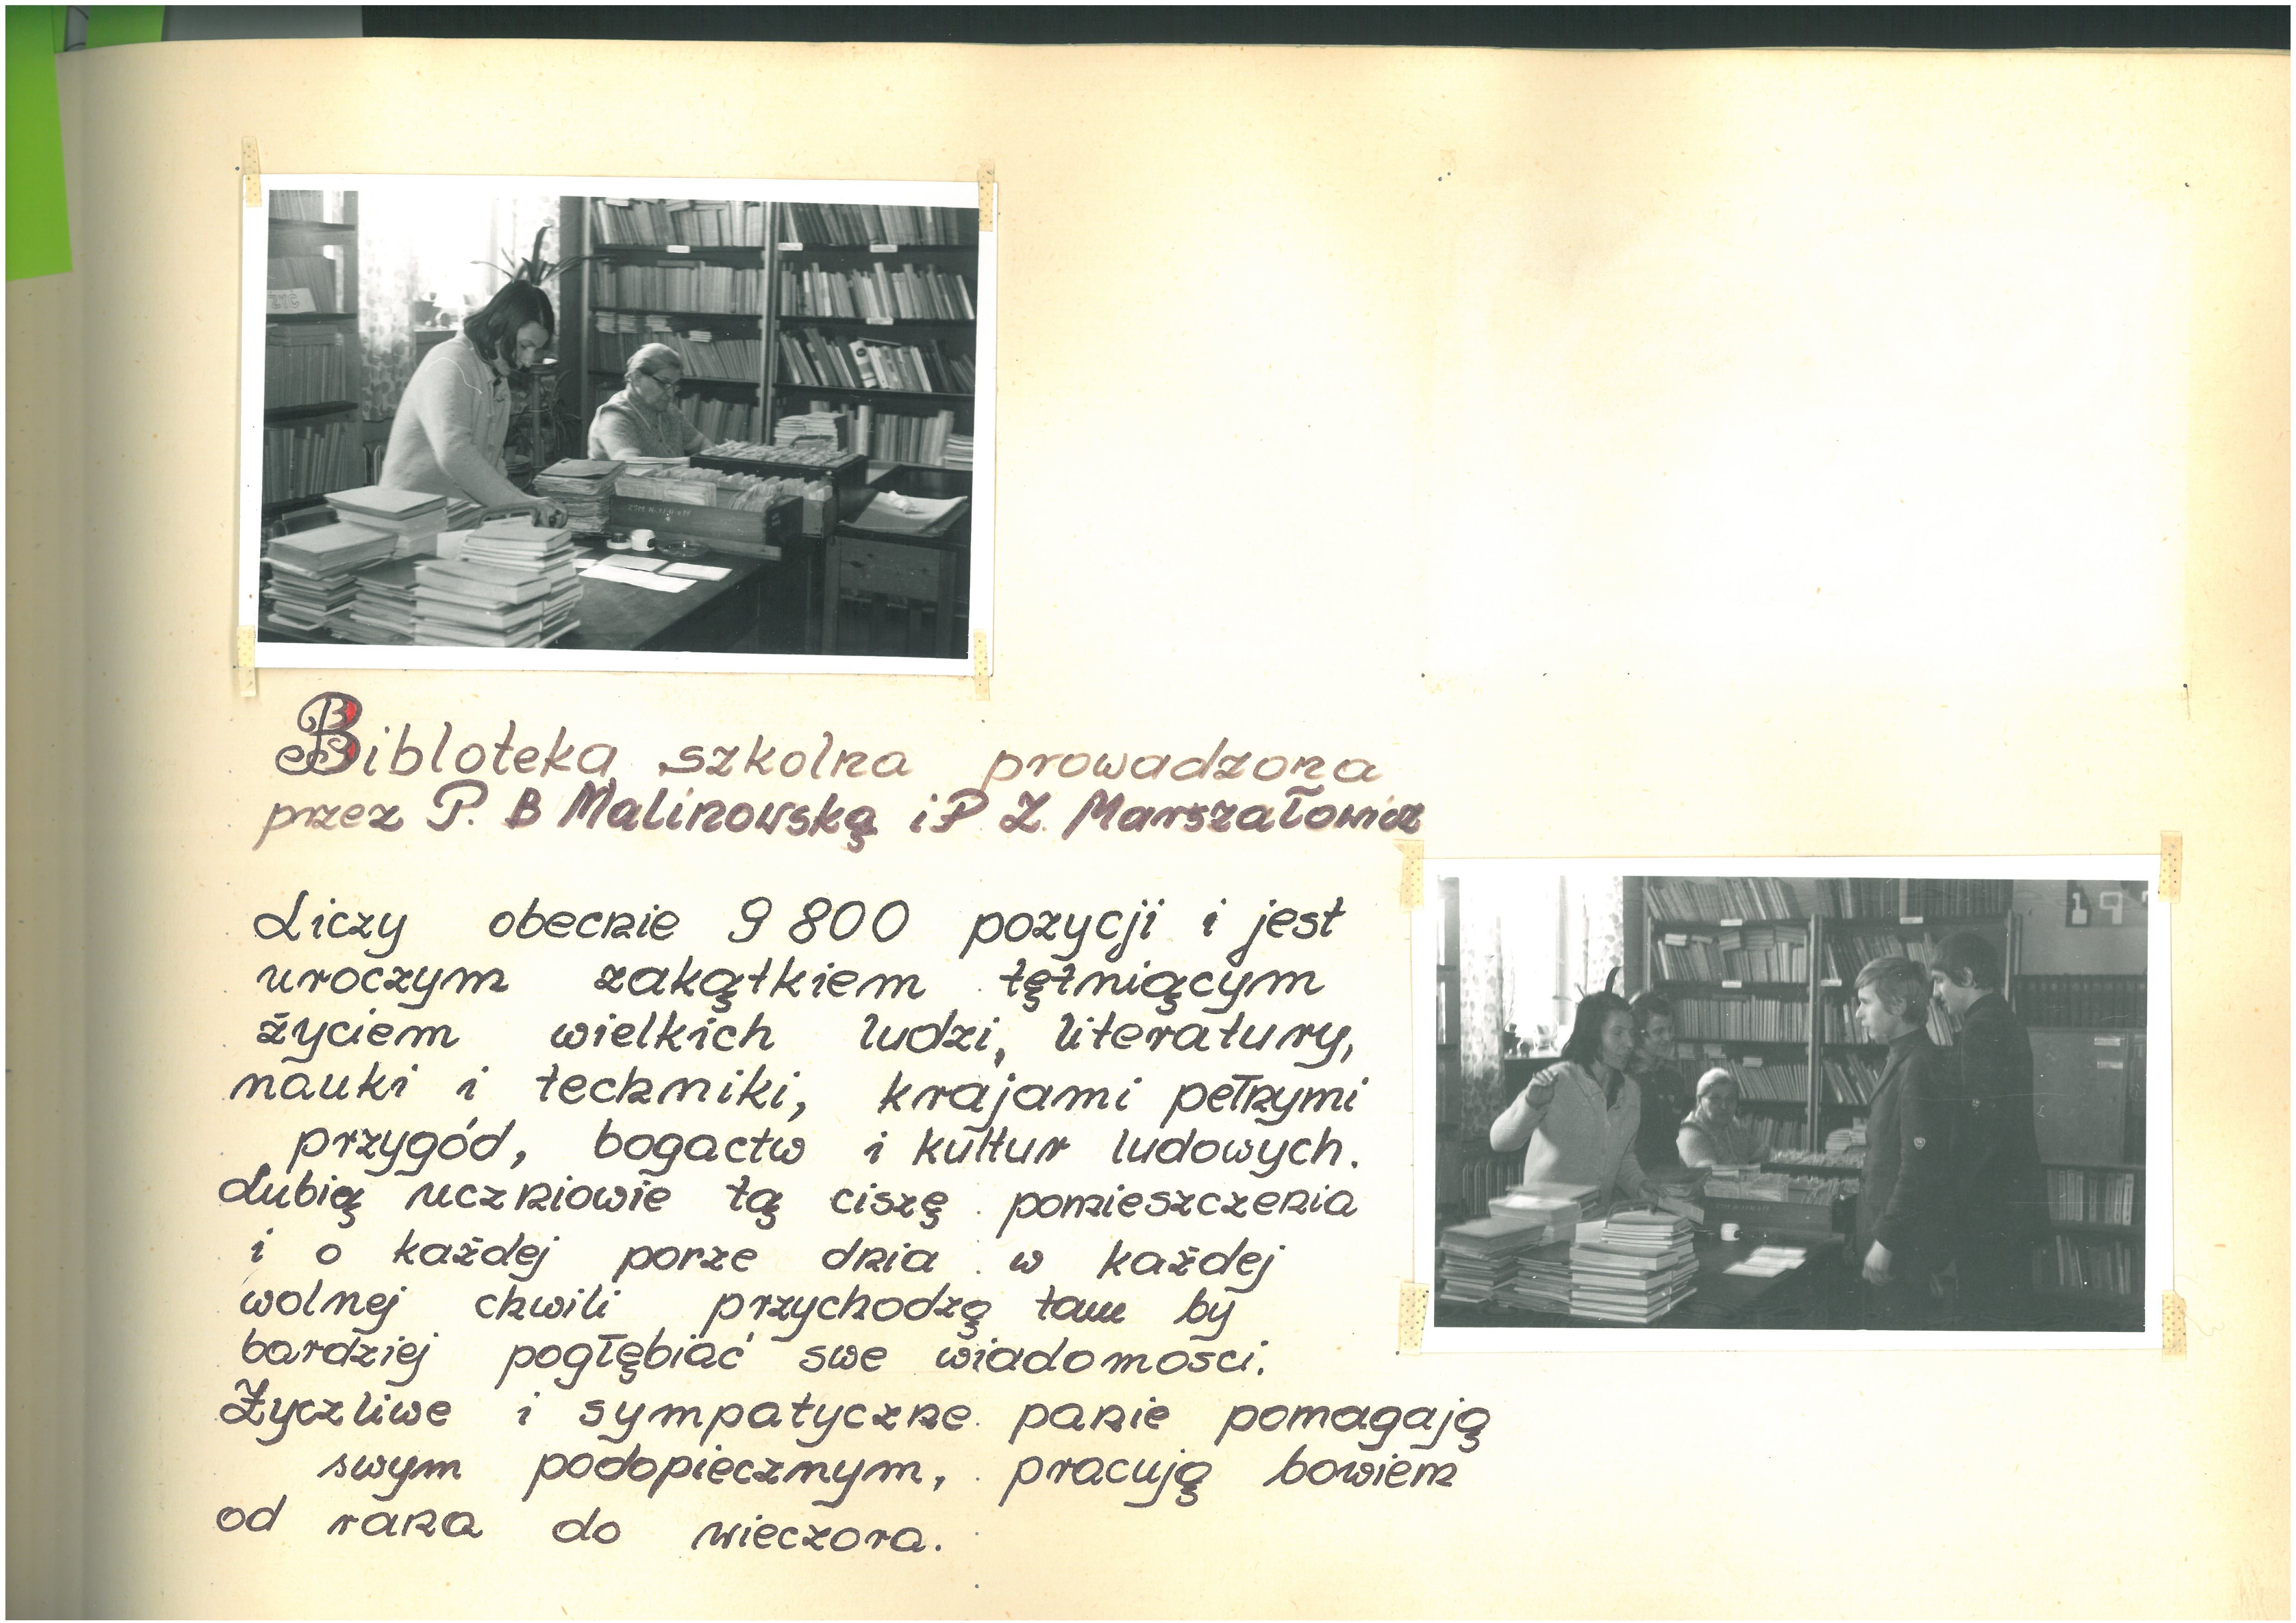 Biblioteka szkolna prowadzona
przez P. B Malinowską i P Z. Marszałowicz
Liczy obecnie 9 800 pozycji i jest
uroczym zakątkiem tętniącym
życiem wielkich ludzi, literatury,
nauki i techniki, krajami pełnymi
przygód, bogactw i kultur ludowych.
Lubią uczniowie tą ciszę pomieszczenia
i o każdej porze dnia w każdej
wolnej chwili przychodzą tam by
bardziej pogłębiać swe wiadomości.
Życzliwe i sympatyczne panie pomagają
swym podopiecznym, pracują bowiem
od rana do wieczora.
19